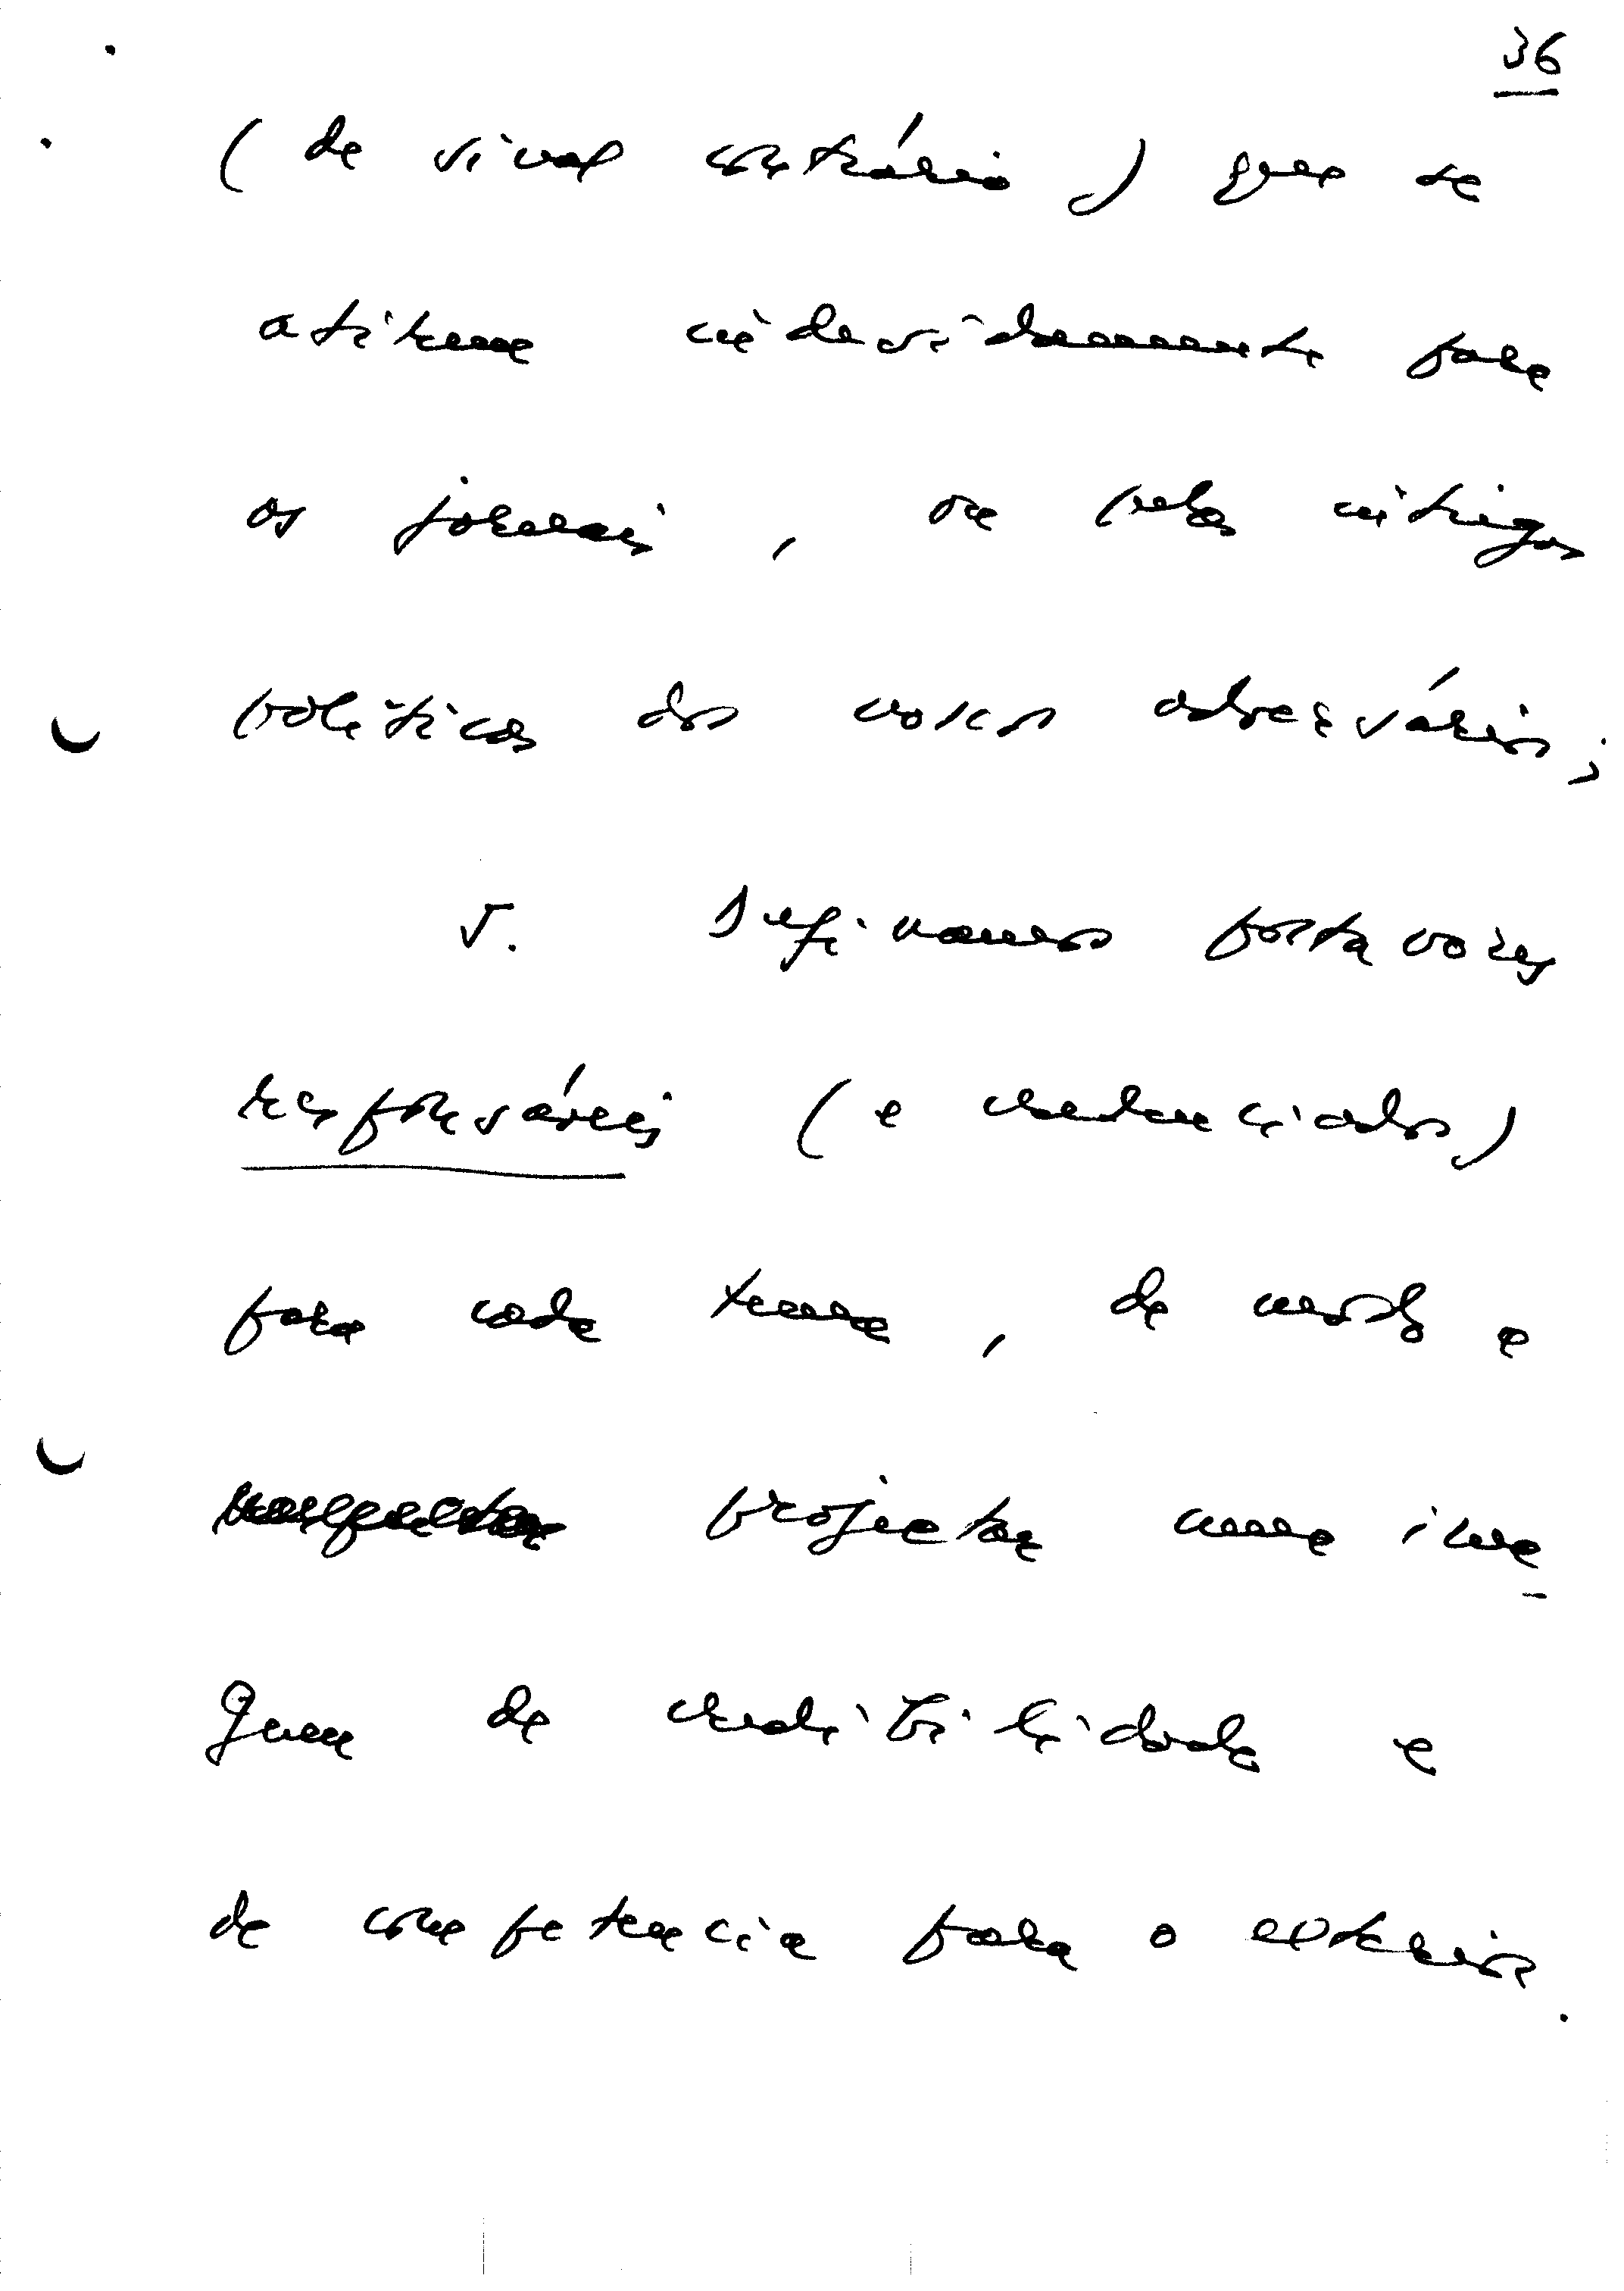 36
(de sinal contrário) que se
atiram indevidamente para
os jornais, ou pelas intrigas
políticas dos nossos adversários;
5. Definamos porta vozes
responsáveis (e credenciados)
para cada tema, de modo a
projectar uma ima-
gem de credibilidade e
de competencia para o exterior.